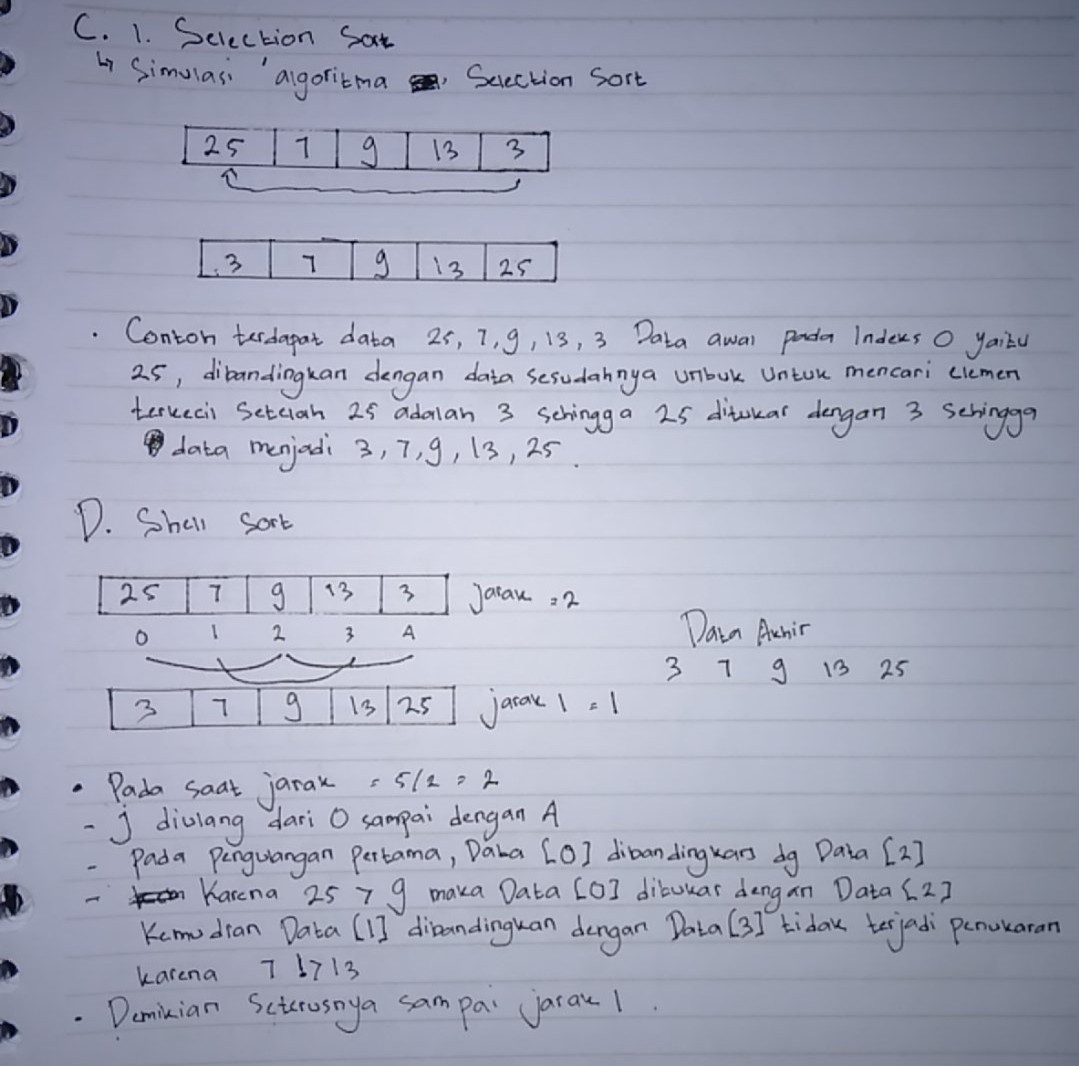 C. 1. Selection Sort
↳ Simulasi algoritma Selection Sort
25 7 9 13 3
3 7 9 13 25
• Contoh terdapat data 25, 7, 9, 13, 3 Data awal pada Indeks 0 yaitu
25, dibandingkan dengan data sesudahnya untuk untuk mencari elemen
terkecil setelah 25 adalah 3 sehingga 25 ditukar dengan 3 sehingga
data menjadi 3, 7, 9, 13, 25.
D. Shell Sort
25 7 9 13 3 jarak = 2
0 1 2 3 4
Data Akhir
3 7 9 13 25
3 7 9 13 25 jarak 1 = 1
• Pada saat jarak = 5/2 = 2
- j diulang dari 0 sampai dengan 4
- pada pengulangan pertama, Data [0] dibandingkan dg Data [2]
- Karena 25 > 9 maka Data [0] ditukar dengan Data [2]
Kemudian Data [1] dibandingkan dengan Data [3] tidak terjadi penukaran
karena 7 !> 13
• Demikian Seterusnya sampai jarak 1.